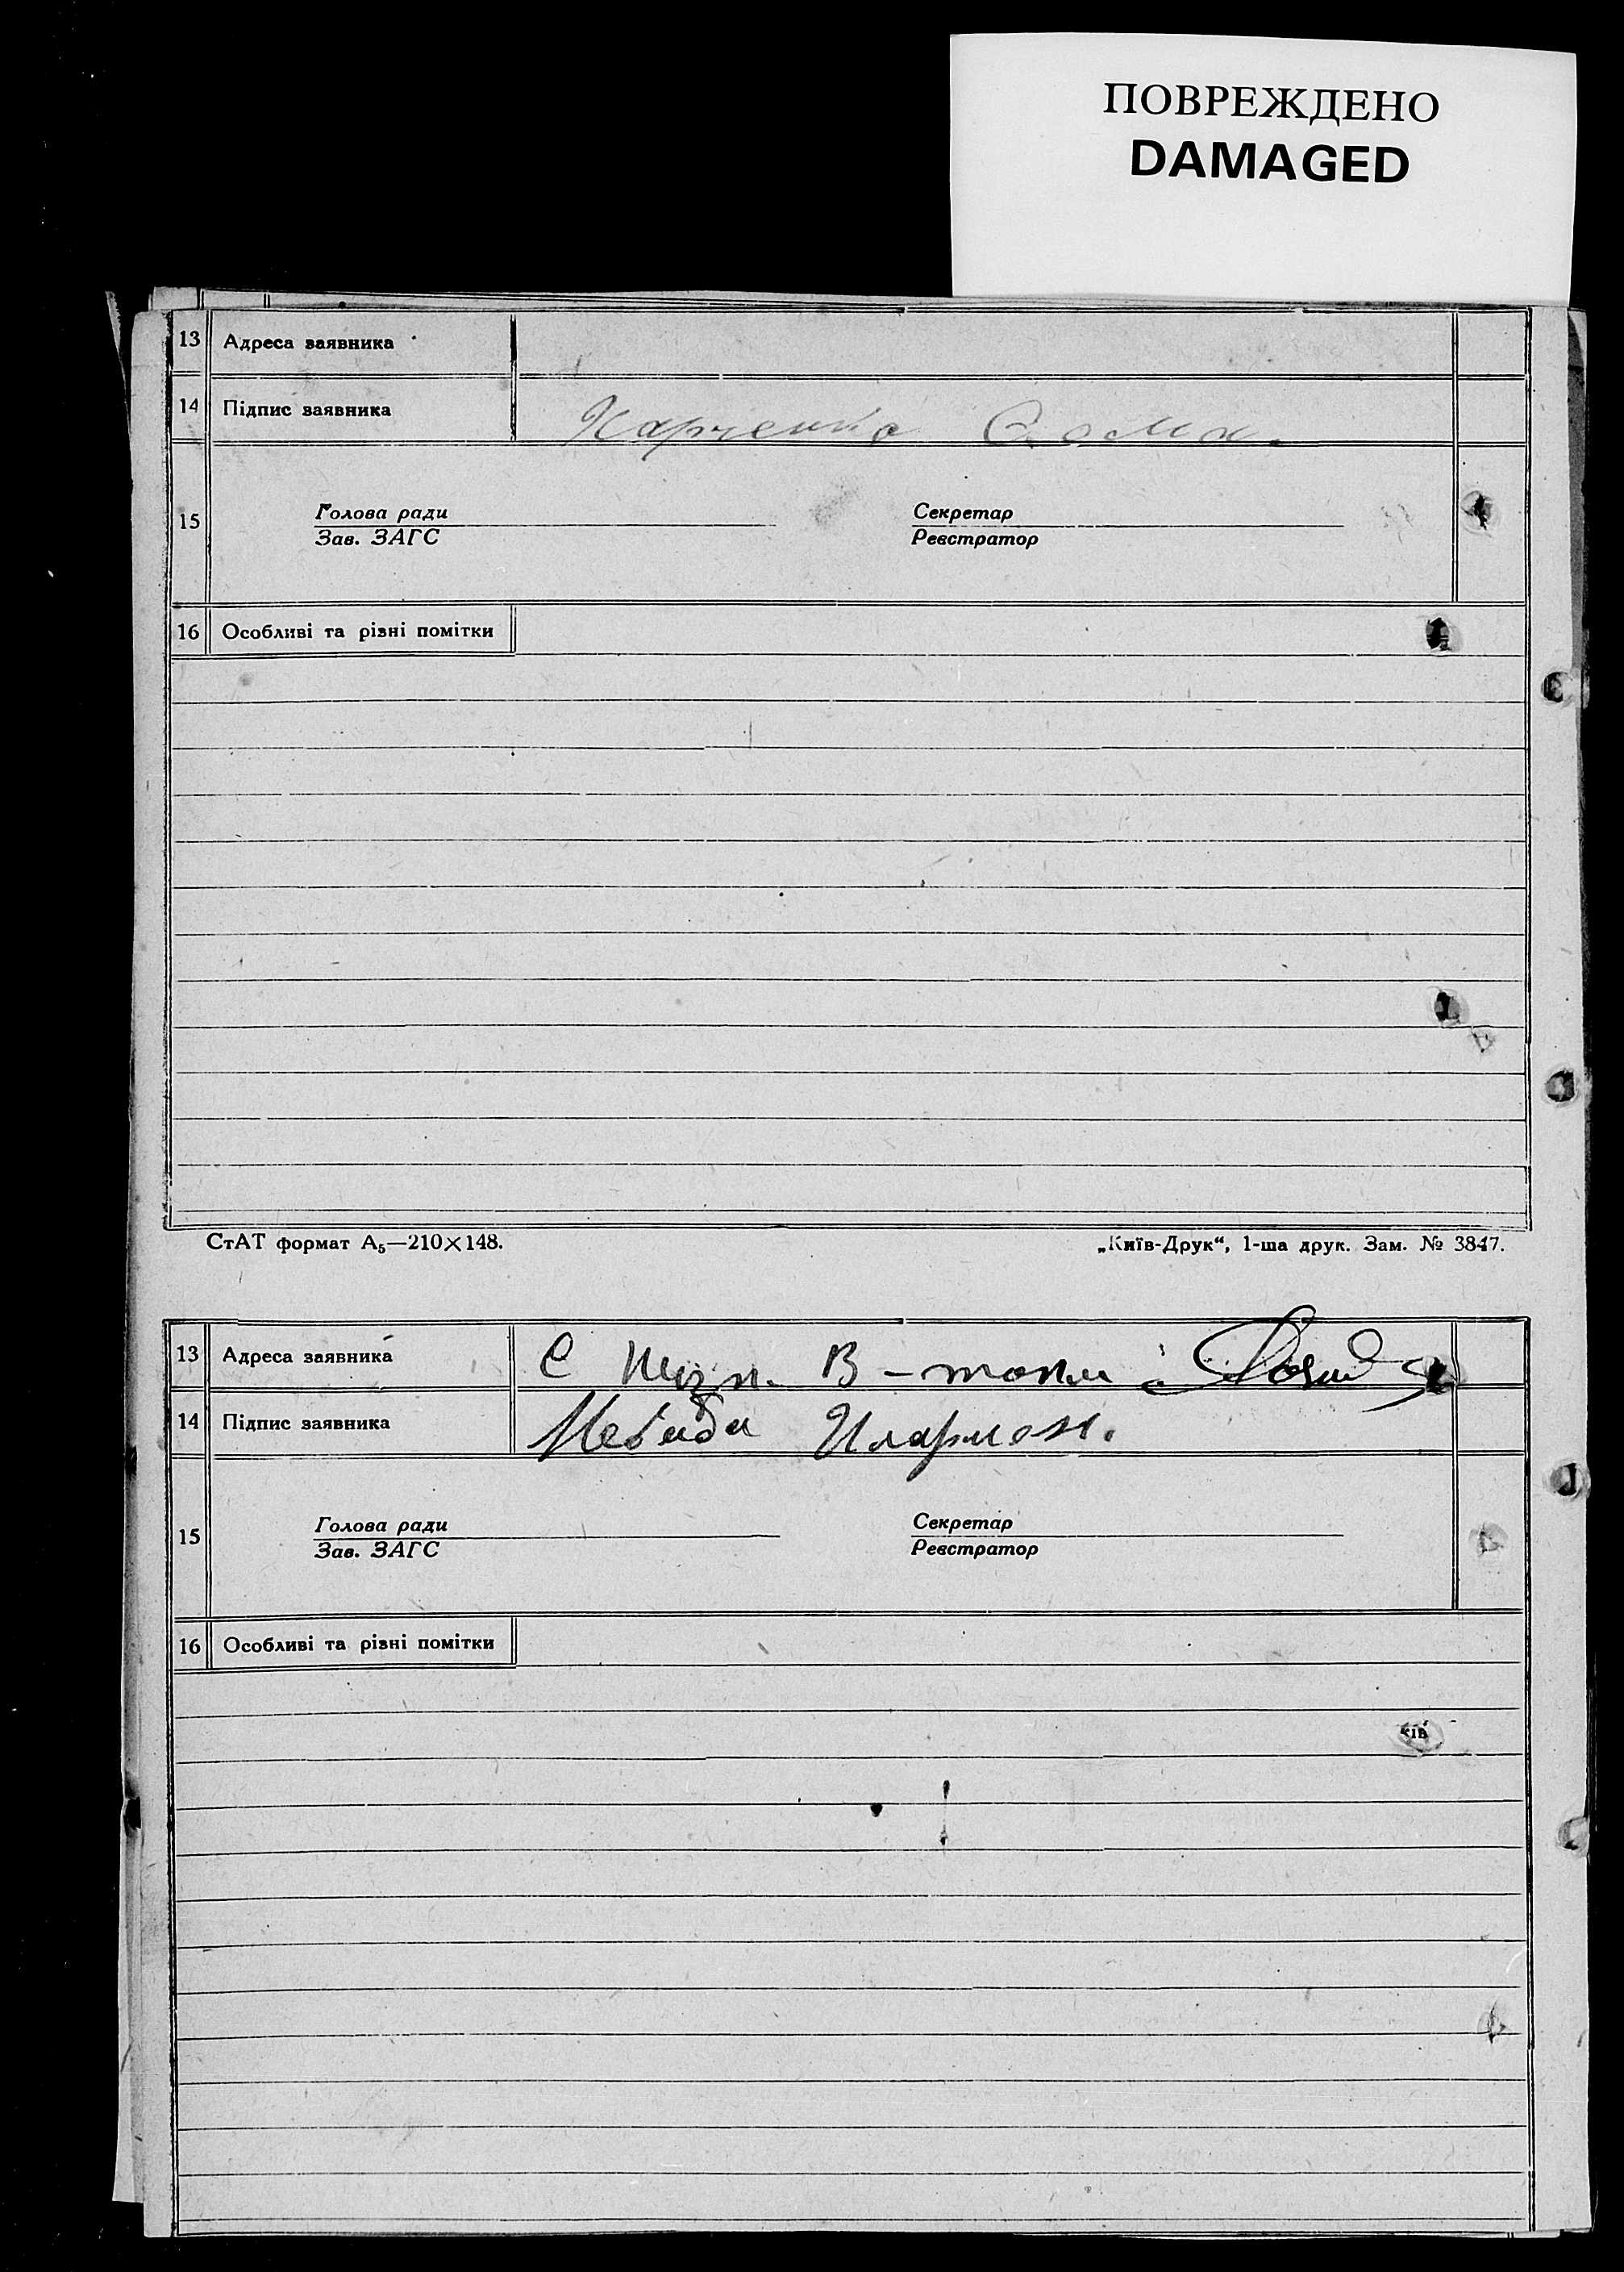 ПОВРЕЖДЕНО
DAMAGED
13 Адреса заявника
14 Підпис заявника Харченко
15 Голова ради Секретар
Зав. ЗАГС Реєстратор
16 Особливі та різні помітки
СтАТ формат А₅—210×148. „Київ-Друк“, 1-ша друк. Зам. № 3847.
13 Адреса заявника С
14 Підпис заявника Иларион.
15 Голова ради Секретар
Зав. ЗАГС Реєстратор
16 Особливі та різні помітки
ків